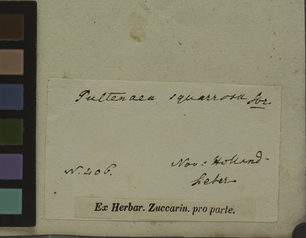 Pultenaea squarrosa
Nov: Holland-
N. 406.
Sieber
Ex Herbar. Zuccarin. pro parte.